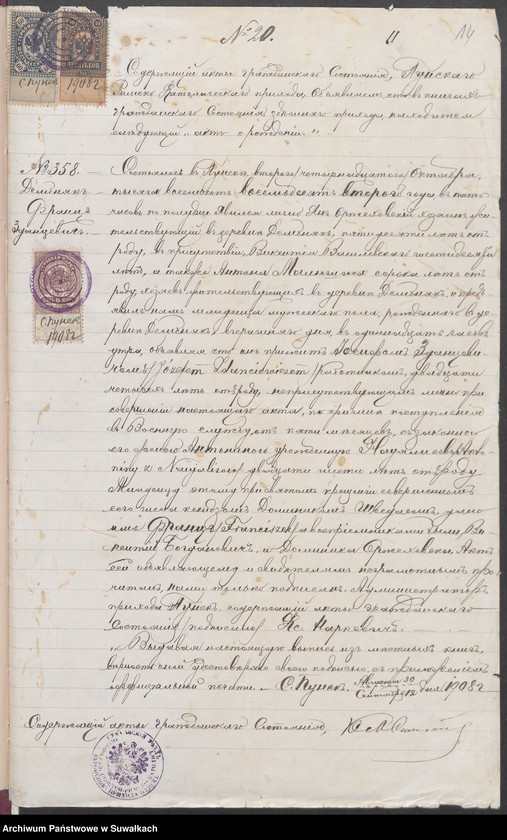 № 20.
11
14
с. Пунск
1908 г
Содержащій акты гражданскаго состоянія, Пунскаго
Римско-Католическаго прихода, Объявляетъ, что въ книгахъ
гражданскаго состоянія здѣшняго прихода, находится
слѣдующій „актъ о рожденіи."
№ 358.
Дембнякъ
Францъ
Зданцевичъ.
с. Пунскъ
1908 г.
Состоялось въ Пунскѣ, второго/четырнадцатаго/Октября,
тысяча восемьсотъ восемьдесятъ второго года, въ пять
часовъ по полудни. Явился лично Янъ Оржеховскій хозяинъ жи-
тельствующій въ деревнѣ Дембнякъ, пятидесяти лѣтъ отъ
роду, въ присутствіи, Викентія Василевскаго шестидесяти
лѣтъ, а также Антона сорока лѣтъ отъ
роду, хозяевъ жительствующихъ въ деревнѣ Дембнякъ, и предъ-
явилъ намъ младенца мужескаго пола, рожденнаго въ де-
ревнѣ Дембнякъ, вчерашняго дня, въ одинадцать часовъ
утра, объявляя что онъ прижитъ Іосифомъ Зданцеви-
чемъ /Józefem Zdancewiczem/ работникомъ, двадцати
четырехъ лѣтъ отъ роду, неприсутствующимъ лично при
совершеніи настоящаго акта, по причинѣ поступленія
въ Военную службу, отъ пяти мѣсяцевъ, съ законной
его женою Антониною урожденною
двадцати шести лѣтъ отъ роду.
Младенцу этому при святомъ крещеніи совершенномъ
сего числа ксендзомъ Доминикомъ дано
имя Францъ /Franciszek/, а воспріемниками были, Ви-
кентій Богдановичъ, и Доминика Оржеховска. Актъ
сей объявляющему и свидѣтелямъ неграмотнымъ про-
читанъ, нами только подписанъ. Администраторъ
прихода Пунскъ, содержащій акты Гражданскаго
состоянія /подписано/ Кс. Наркевичъ.
„Выдавая настоящую выпись изъ мѣстныхъ книгъ,
вѣрность оной удостовѣряю своею подписью, съ приложеніемъ
оффиціальной печати. — С. Пунскъ. Августа 30
Сентября 12 дня 1908 г.
Содержащій акты гражданскаго Состоянія,
Archiwum Państwowe w Suwałkach